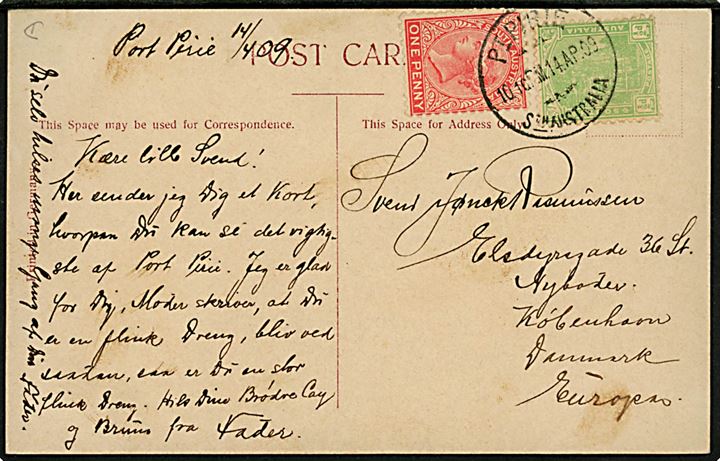 Port Pirie 14/4 09
POST CAR
ONE PENNY
PT PIRIE
10.10 14.AP.09
STH AUSTRALIA
This Space may be used for Correspondence.
This Space for Address Only
Kære lille Svend!
Her sender jeg Dig et Kort,
hvorpaa Du kan se det vigtig-
ste af Port Pirie. Jeg er glad
for Dig, Moder skriver, at Du
er en flink Dreng, bliv ved
saadan, saa er Du en stor
flink Dreng. Hils Dine Brødre Cay
og Bruun fra Fader.
Du selv hilses mange Gang af Din Fader.
Svend Junck Rasmussen
Elsdyrsgade 36 St.
Nyboder.
København
Danmark
Europa.